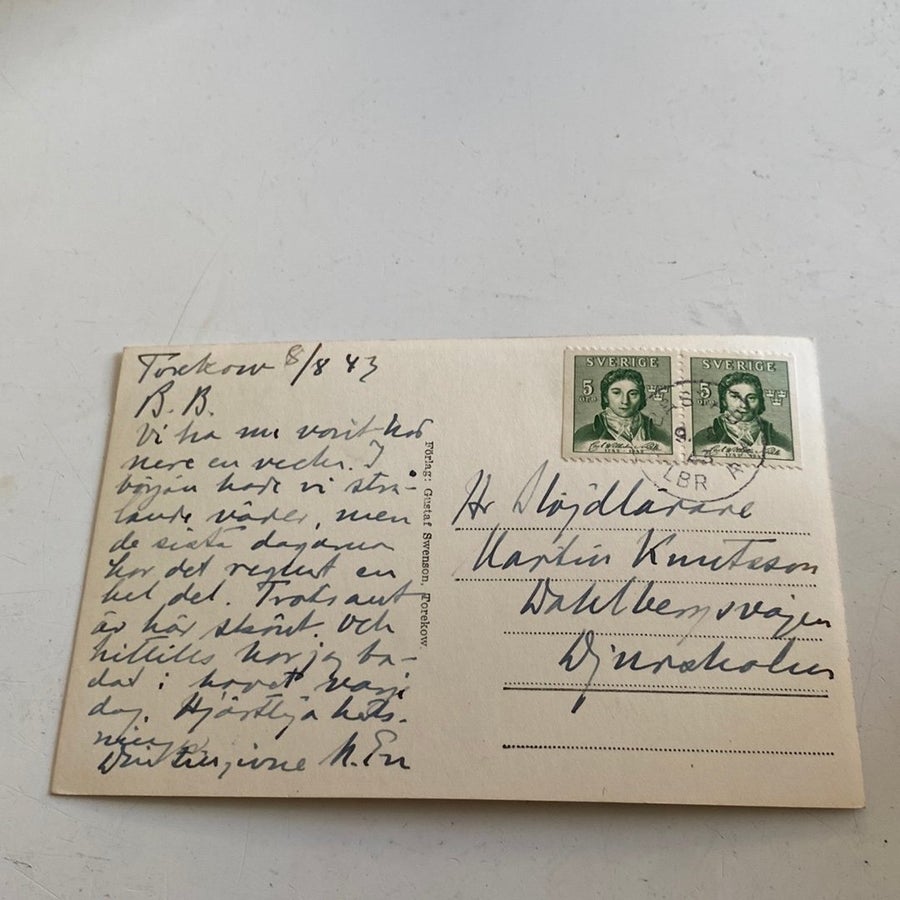 Torekow 8/8 43
B. B.
Vi ha nu varit här
nere en vecka. I
början hade vi strå-
lande väder, men
de sista dagarna
har det regnat en
hel del. Trots allt
är här skönt. Och
hittills har jag ba-
dat i havet varje
dag. Hjärtliga häls-
ningar
Din tillgivne
Förlag: Gustaf Swenson, Torekow.
SVERIGE
5
ÖRE
SVERIGE
5
ÖRE
LBR
Hr Slöjdlärare
Martin Knutsson
Dahlbergsvägen
Djursholm